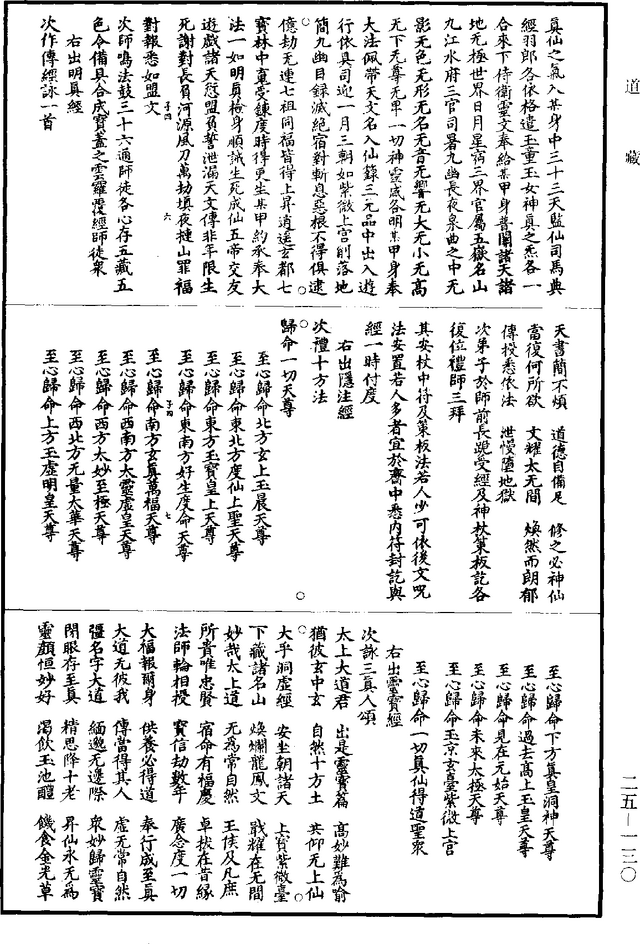 道藏
真仙之氣入某身中三十三天監仙司馬典
經羽郎各依格遣玉童玉女神真之炁各一
合來下侍衛靈文奉給某甲身普關諸天諸
地无極世界日月星宿三界官屬五嶽名山
九江水府三官司署九幽長夜泉曲之中无
影无色无形无名无音无響无大无小无高
无下无尊无卑一切神靈咸各明某甲身奉
大法佩帶天文名入仙籙三元品中出入遊
行依真司迎一月三朝如紫微上宮削落地
簡九幽目錄滅絕宿對斬息惡根不得俱逮
億劫无連七祖同福皆得上昇逍遙玄都七
寶林中更受鍊度時得更生某甲約承奉大
法一如明真檢身順誡生死成仙五帝交友
遊戲諸天愆盟負誓泄漏天文傳非年限生
死謝對長負河源風刀萬劫填夜撻山罪福
對報悉如盟文
次師鳴法鼓三十六通師徒各心存五藏五
色令備具合成寶蓋之雲羅覆經師徒衆
右出明真經
次作傳經詠一首
天書簡不煩　道德自備足　修之必神仙
當復何所欲　文耀太无間　煥然而朗郁
傳授悉依法　泄慢墮地獄
次弟子於師前長跪受經及神杖策板訖各
復位禮師三拜
其安杖中符及策板法若人少可依後文呪
法安置若人多者宜於齋中悉内符封訖與
經一時付度
右出隱注經
次禮十方法
歸命一切天尊
至心歸命北方玄上玉晨天尊
至心歸命東北方度仙上聖天尊
至心歸命東方玉寶皇上天尊
至心歸命東南方好生度命天尊
至心歸命南方玄真萬福天尊
至心歸命西南方太靈虛皇天尊
至心歸命西方太妙至極天尊
至心歸命西北方无量太華天尊
至心歸命上方玉虛明皇天尊
至心歸命下方真皇洞神天尊
至心歸命過去高上玉皇天尊
至心歸命見在元始天尊
至心歸命未來太極天尊
至心歸命玉京玄臺紫微上宮
至心歸命一切真仙得道聖衆
右出靈寶經
次詠三真人頌
太上大道君　出是靈寶篇　高妙難為喻
猶彼玄中玄　自然十方土　共仰无上仙
大乎洞虛經　安坐朝諸天　上寶紫微臺
下藏諸名山　煥爛龍鳳文　戢耀在无間
妙哉太上道　无為常自然　王侯及凡庶
所貴唯忠賢　宿命有福慶　卓拔在昔緣
法師輪相授　寶信劫數年　廣念度一切
大福報爾身　供養必得道　奉行成至真
大道无彼我　傳當得其人　虛无常自然
彊名字大道　緬邈无邊際　衆妙歸靈寶
閉眼存至真　精思降十老　昇仙永无為
靈顏恒妙好　渴飲玉池醴　饑食金光草
二五—一三〇